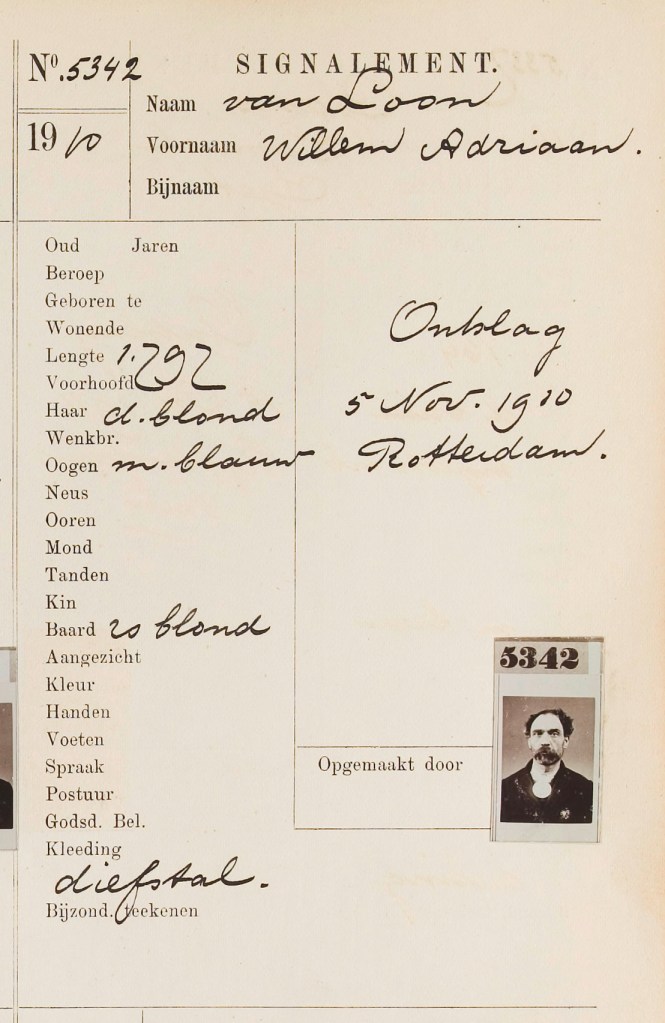 No. 5342
SIGNALEMENT.
Naam van Loon
1910
Voornaam Willem Adriaan.
Bijnaam
Oud Jaren
Beroep
Geboren te
Wonende
Lengte 1.797
Voorhoofd
Haar d. blond
Wenkbr.
Oogen m. blauw
Neus
Ooren
Mond
Tanden
Kin
Baard rs blond
Aangezicht
Kleur
Handen
Voeten
Spraak
Postuur
Godsd. Bel.
Kleeding
diefstal.
Bijzond. teekenen
Ontslag
5 Nov. 1910
Rotterdam.
5342
Opgemaakt door